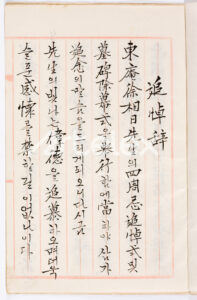 追悼辞
東庵徐相日先生의四周忌追悼式및
墓碑除幕式을擧行함에當하야삼가
追念의말슴을드리게되오니다시금
先生의빛나는偉德을追慕하오며더욱
슬픈感懷를禁할길이없나이다